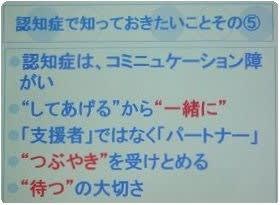 認知症で知っておきたいことその⑤
●認知症は、コミニュケーション障
がい
●“してあげる”から“一緒に”
●「支援者」ではなく「パートナー」
●“つぶやき”を受けとめる
●“待つ”の大切さ